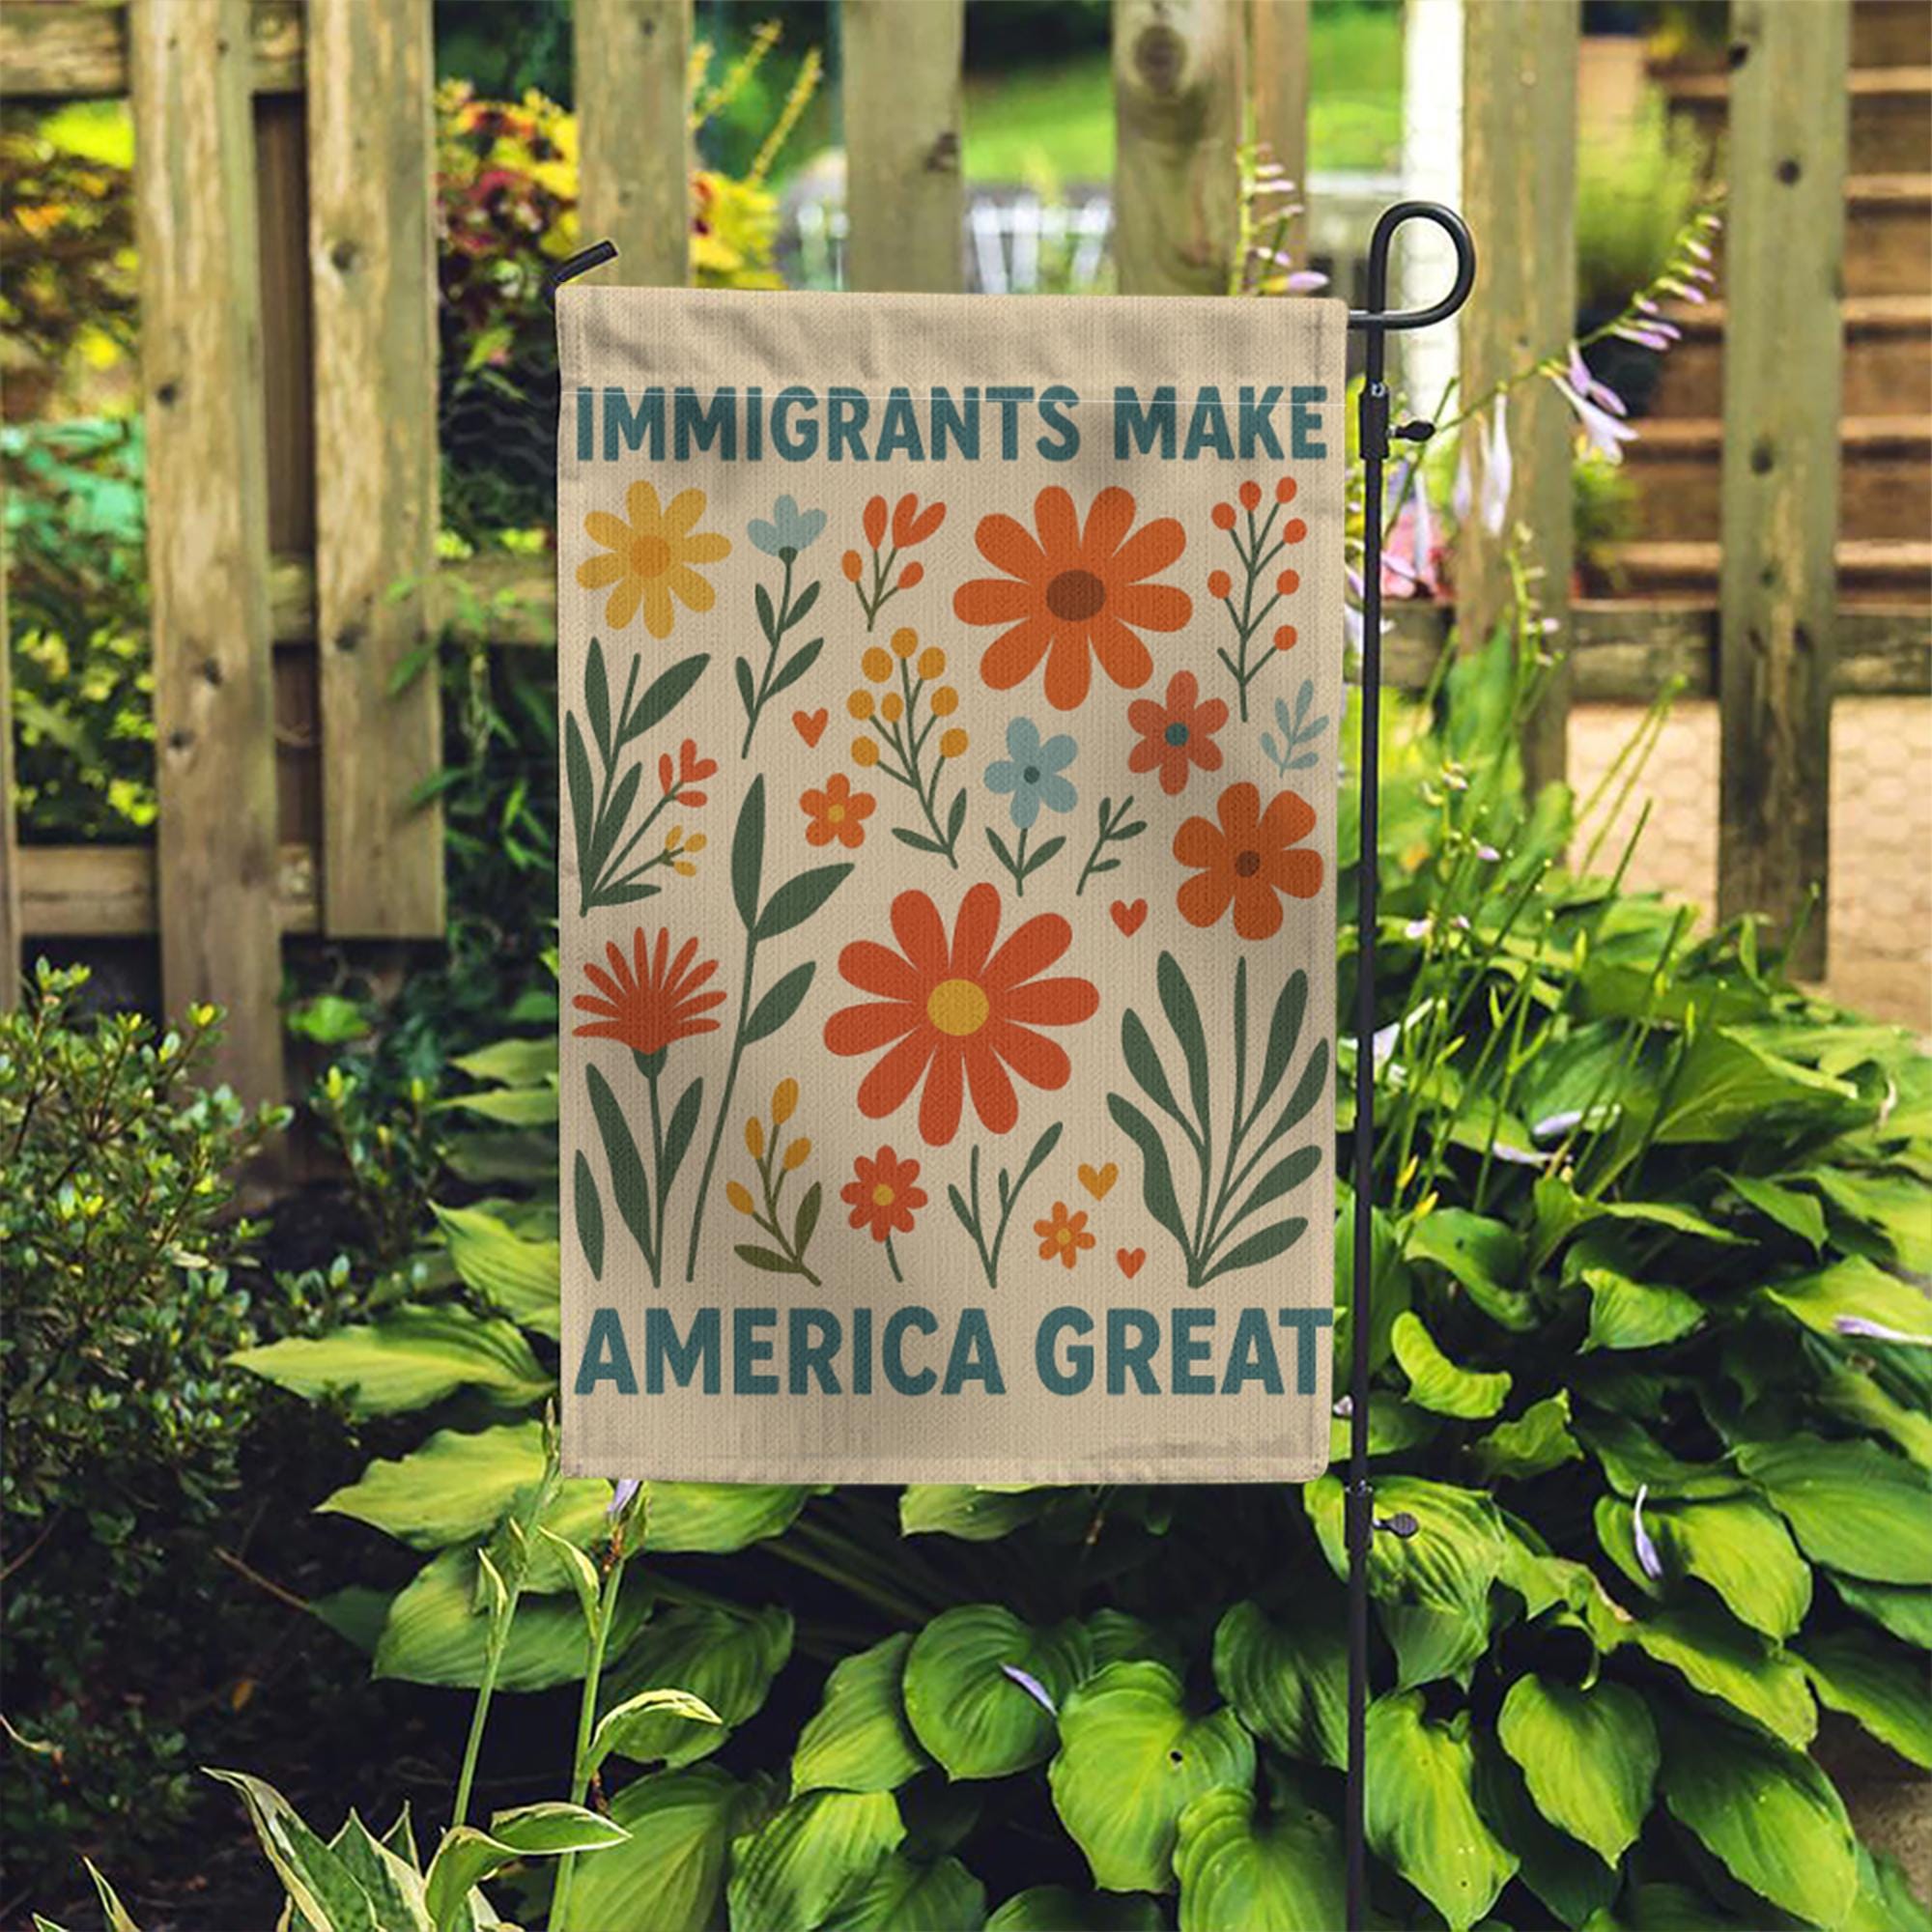 IMMIGRANTS MAKE
AMERICA GREAT